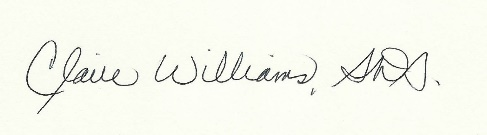 Claire Williams,